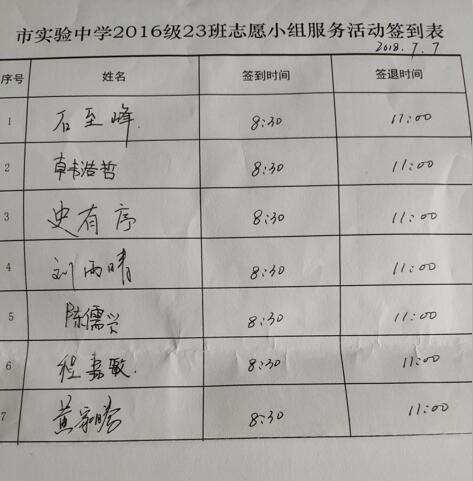 市实验中学2016级23班志愿小组服务活动签到表
2018.7.7
序号 姓名 签到时间 签退时间
1 石至峰 8:30 11:00
2 韩浩哲 8:30 11:00
3 史有序 8:30 11:00
4 刘雨晴 8:30 11:00
5 陈儒兴 8:30 11:00
6 程嘉敏 8:30 11:00
7 黄 8:30 11:00